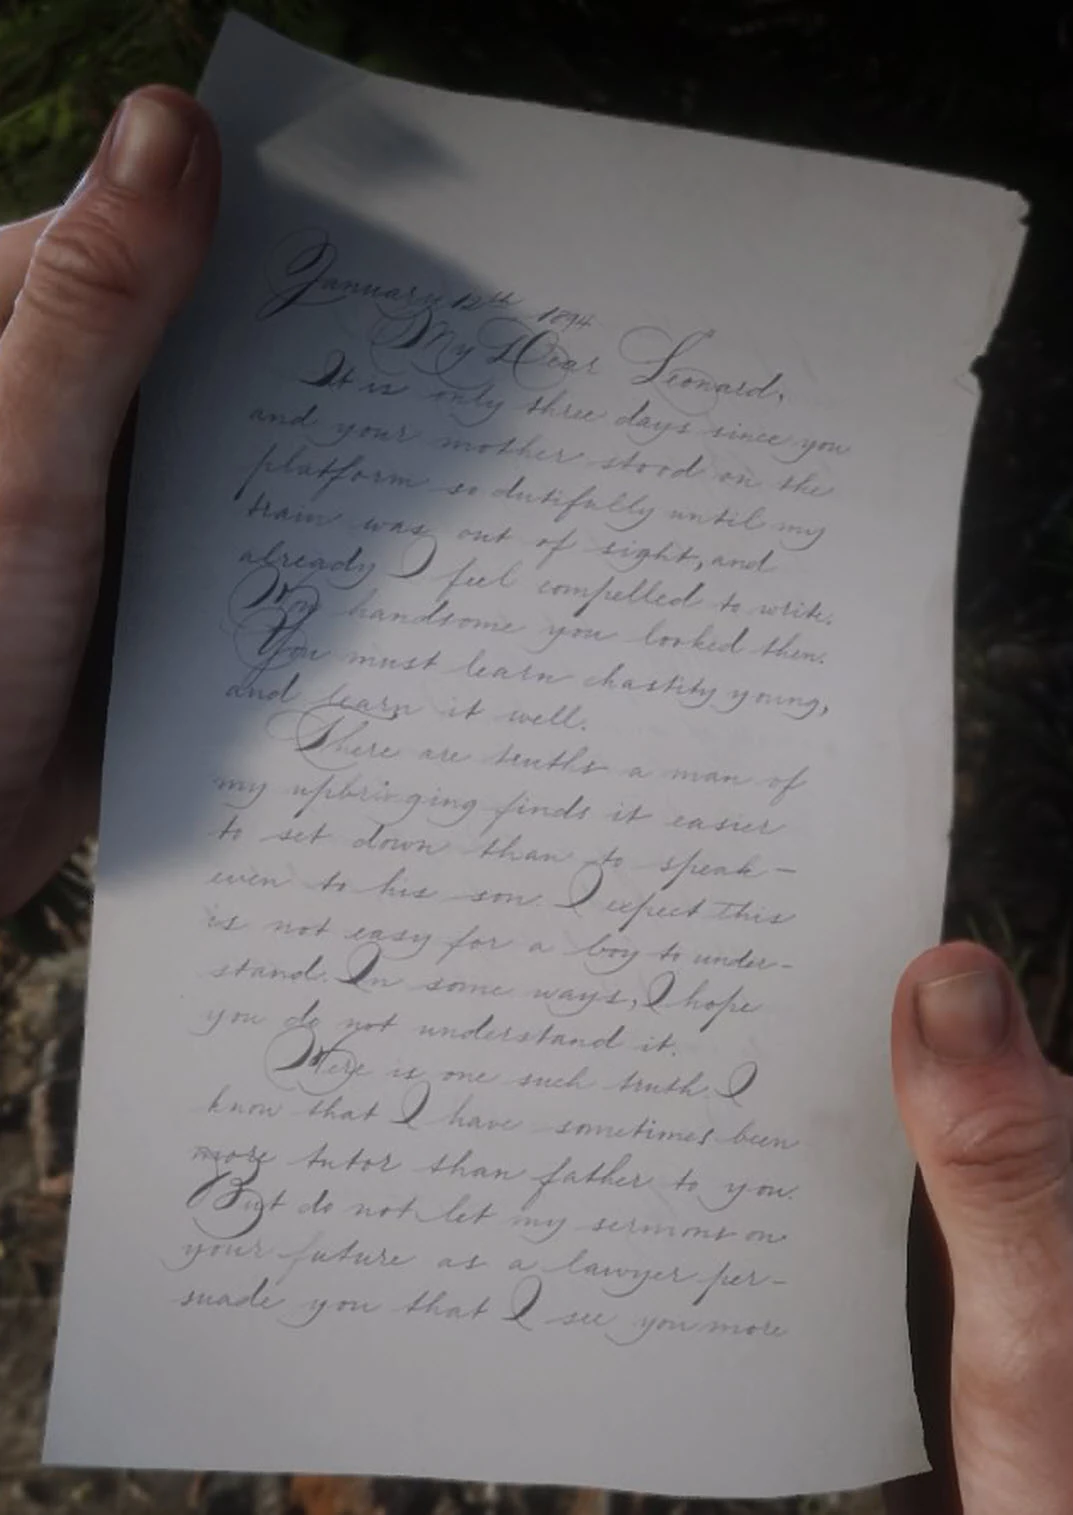 January 12th, 1894
My Dear Leonard,
It is only three days since you
and your mother stood on the
platform so dutifully until my
train was out of sight, and
already I feel compelled to write.
How handsome you looked then.
You must learn chastity young,
and learn it well.
There are truths a man of
my upbringing finds it easier
to set down than to speak—
even to his son. I expect this
is not easy for a boy to under-
stand. In some ways, I hope
you do not understand it.
Here is one such truth. I
know that I have sometimes been
more tutor than father to you.
But do not let my sermons on
your future as a lawyer per-
suade you that I see you more